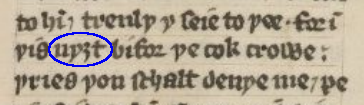 to hī, treuly y seie to þee · for ī
þis nyȝt bifor þe cok crowe :
þries þou schalt denye me, þe